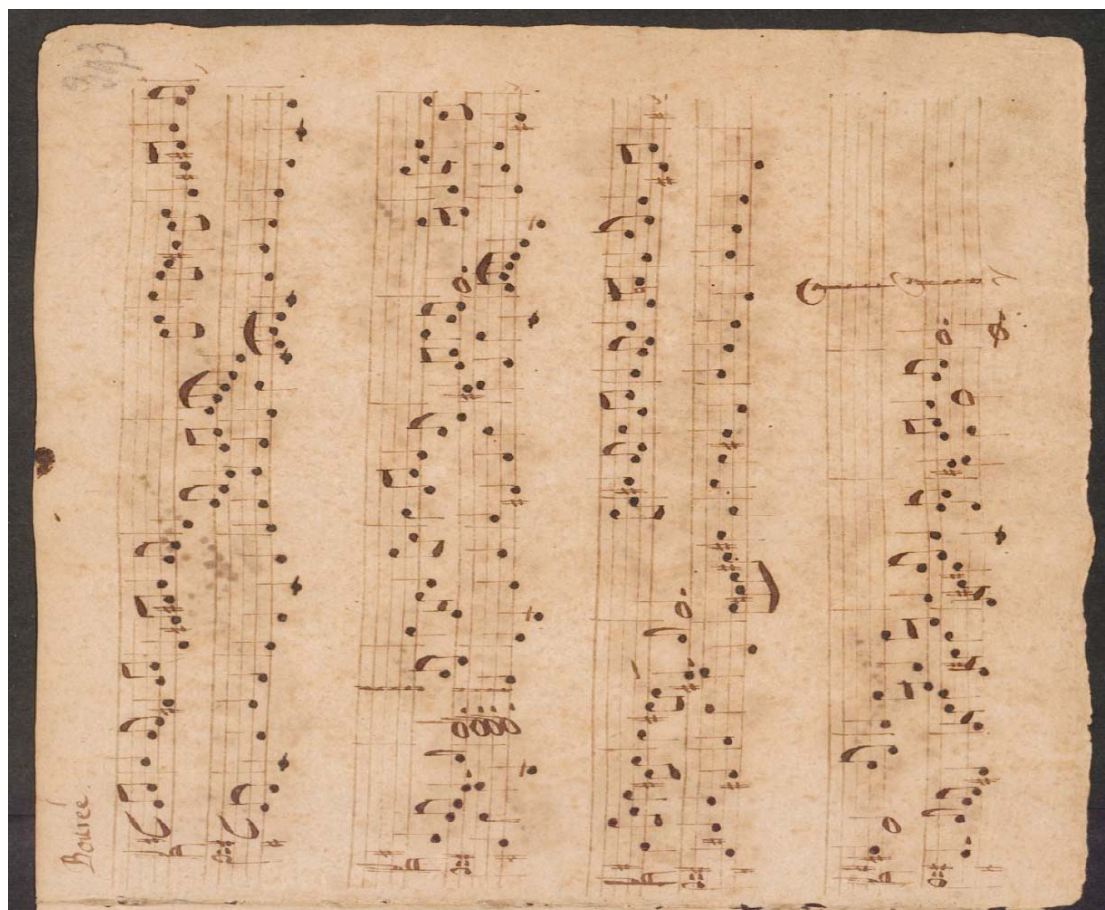 Bourée.